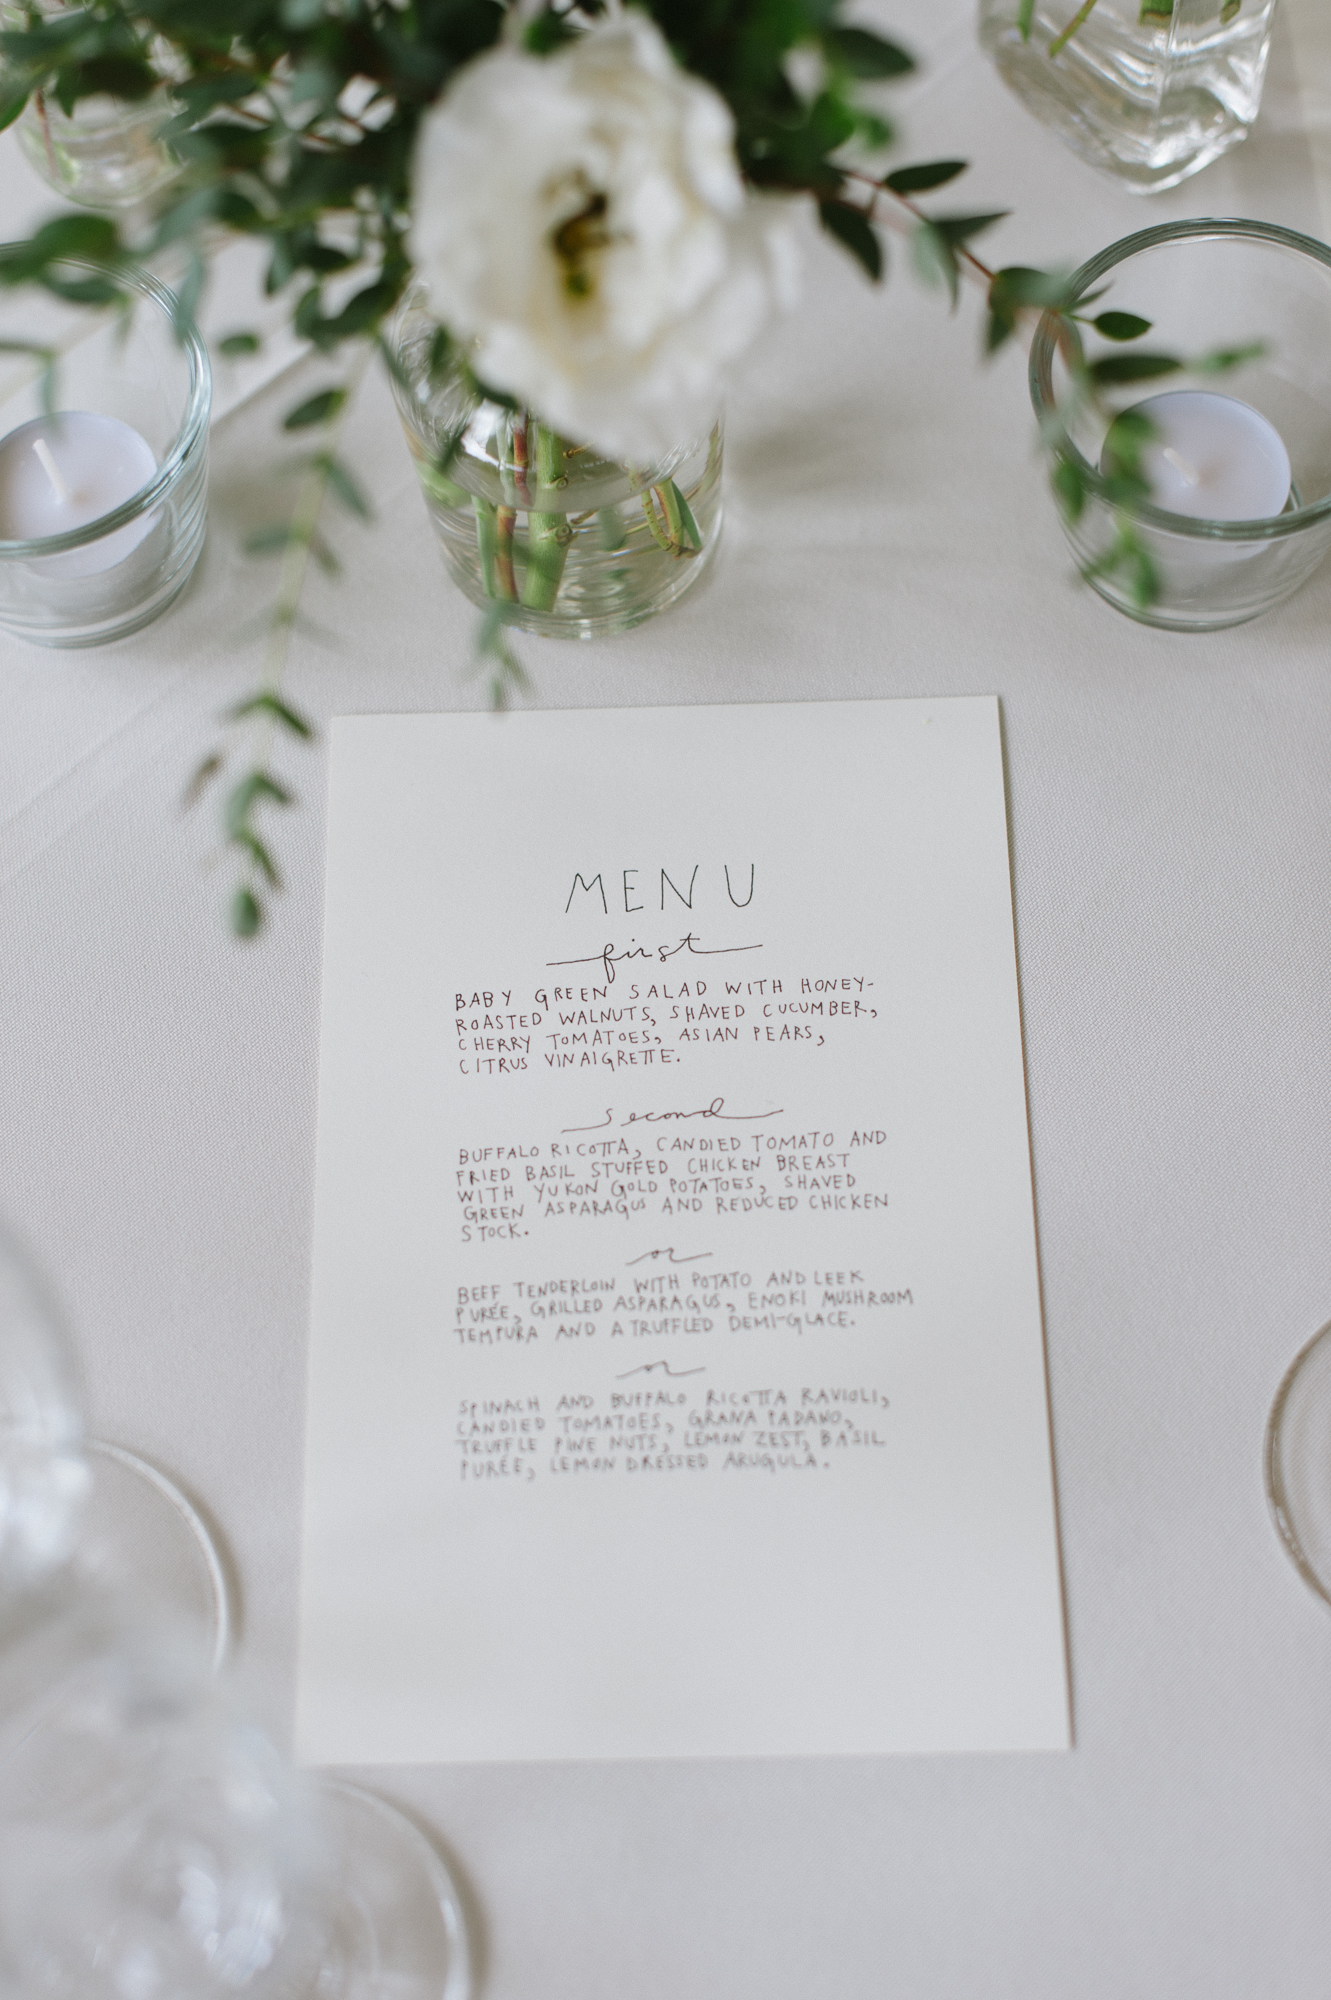 MENU
first
BABY GREEN SALAD WITH HONEY-
ROASTED WALNUTS, SHAVED CUCUMBER,
CHERRY TOMATOES, ASIAN PEARS,
CITRUS VINAIGRETTE.
second
BUFFALO RICOTTA, CANDIED TOMATO AND
FRIED BASIL STUFFED CHICKEN BREAST
WITH YUKON GOLD POTATOES, SHAVED
GREEN ASPARAGUS AND REDUCED CHICKEN
STOCK.
or
BEEF TENDERLOIN WITH POTATO AND LEEK
PURÉE, GRILLED ASPARAGUS, ENOKI MUSHROOM
TEMPURA AND A TRUFFLED DEMI-GLACE.
or
SPINACH AND BUFFALO RICOTTA RAVIOLI,
CANDIED TOMATOES, GRANA PADANO,
TRUFFLE PINE NUTS, LEMON ZEST, BASIL
PURÉE, LEMON DRESSED ARUGULA.